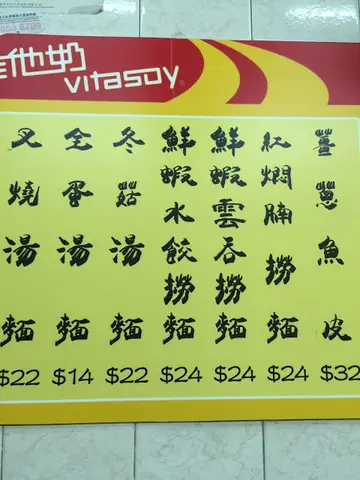 他奶
vitasoy
薑蔥魚皮
$32
紅燜腩撈麵
$24
鮮蝦雲吞撈麵
$24
鮮蝦水餃撈麵
$24
冬菇湯麵
$22
全蛋湯麵
$14
叉燒湯麵
$22